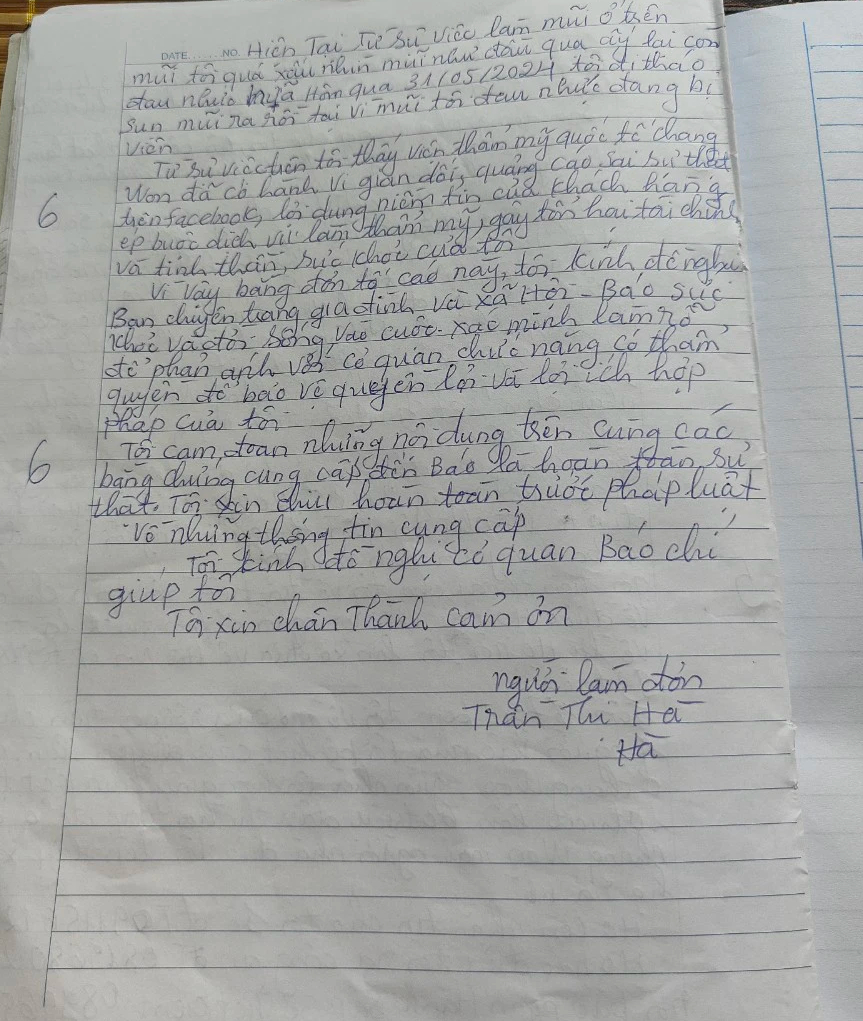 DATE......NO. Hiện Tại Từ Sự việc làm mũi ở trên
mũi tôi quá xấu nhìn mũi như đầu qua cây lại còn
đau nhức nữa Hôn qua 31/05/2024 tôi đi tháo
sụn mũi ra rồi tại vì mũi tôi đau nhức đang bị
viên
Từ sự việc trên tôi thấy viện thẩm mỹ quốc tế chang
Won đã có hành vi gian dối, quảng cáo sai sự thật
trên facebook, lợi dụng niềm tin của khách hàng
ép buộc dịch vụ làm thẩm mỹ, gây tổn hại tài chính
và tinh thần, sức khoẻ của tôi
Vì vậy bằng đơn tố cáo này, tôi kính đề nghị
Ban chuyên trang gia đình và xã Hội - Báo sức
khoẻ và đời sống vào cuộc xác minh làm rõ
để phản ánh với cơ quan chức năng có thẩm
quyền để bảo vệ quyền lợi và lợi ích hợp
pháp của tôi
6
Tôi cam đoan những nội dung trên cùng các
bằng chứng cung cấp đến Báo là hoàn toàn sự
6
thật. Tôi xin chịu hoàn toàn trước pháp luật
Về những thông tin cung cấp
Tôi kính đề nghị cơ quan Báo chí
giúp tôi
Tôi xin chân Thành cảm ơn
người làm đơn
Trần Thị Hà
Hà